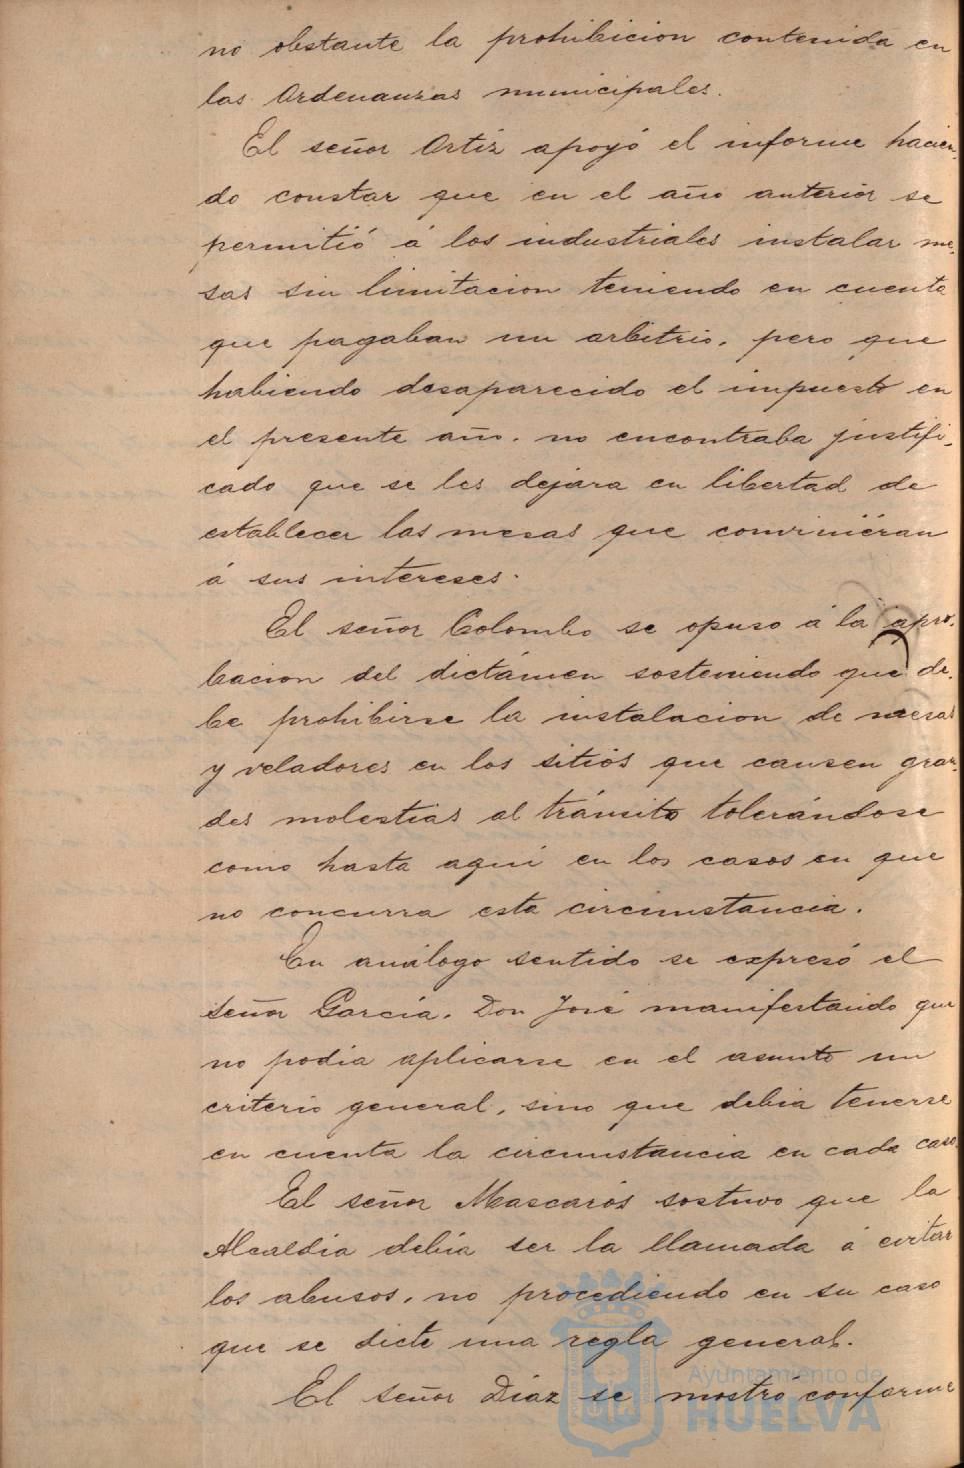 no obstante la prohibicion contenida en
las Ordenanzas municipales.
El señor Ortiz apoyó el informe hacien-
do constar que en el año anterior se
permitió á los industriales instalar me-
sas sin limitacion teniendo en cuenta
que pagaban un arbitrio, pero que
habiendo desaparecido el impuesto en
el presente año, no encontraba justifi-
cado que se les dejara en libertad de
establecer las mesas que convinieran
á sus intereses.
El señor Colombo se opuso á la apro-
bacion del dictámen sosteniendo que de-
be prohibirse la instalacion de mesas
y veladores en los sitios que causen gran-
des molestias al tránsito tolerándose
como hasta aquí en los casos en que
no concurra esta circunstancia.
En análogo sentido se expresó el
señor García, Don José manifestando que
no podia aplicarse en el asunto un
criterio general, sino que debia tenerse
en cuenta la circunstancia en cada caso.
El señor Mascarós sostuvo que la
Alcaldía debía ser la llamada á evitar
los abusos, no procediendo en su caso
que se dicte una regla general.
El señor Díaz se mostró conforme
Ayuntamiento de
HUELVA